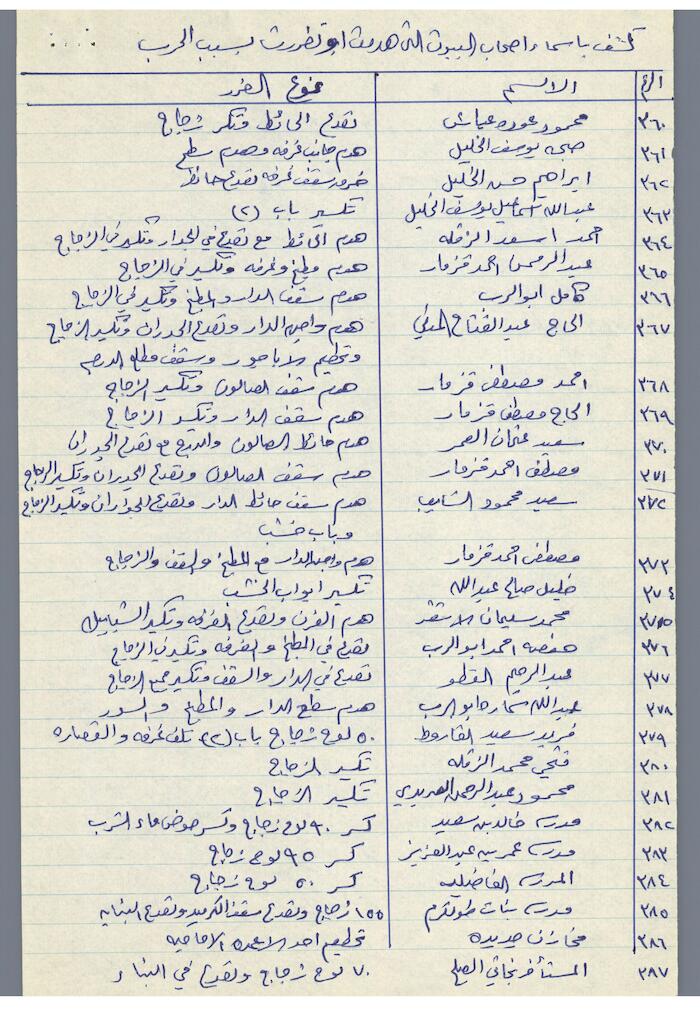 كشف باسماء اصحاب البيوت التي هدمت او تضررت بسبب الحرب
الرقم الاسم نوع الضرر
٣٦٠ محمود عوده عياش تصدع الحائط وتكسر زجاج
٣٦١ صبحه يوسف الخليل هدم جانب غرفه وهدم سطح
٣٦٢ ابراهيم حسن الخليل سقف غرفه تصدع حائط
٣٦٣ عبدالله اسماعيل يوسف الخليل تكسير باب (٢)
٣٦٤ احمد اسعد الزقله هدم الحائط مع تصدع في الجدار وتكسير في الزجاج
٣٦٥ عبدالرحمن احمد قزمار هدم مطبخ وغرفه وتكسير في الزجاج
٣٦٦ كامل ابوالرب هدم سقف الدار والمطبخ وتكسير في الزجاج
٣٦٧ الحاج عبدالفتاح هدم واجهة الدار وتصدع الجدران وتكسير الزجاج
وتحطيم الاباجور وسقف مطلع الدرج
٣٦٨ احمد مصطفى قزمار هدم سقف الصالون وتكسير الزجاج
٣٦٩ الحاج مصطفى قزمار هدم سقف الدار وتكسير الزجاج
٣٧٠ سعيد عثمان العمر هدم حائط الصالون مع تصدع الجدران
٣٧١ مصطفى احمد قزمار هدم سقف الصالون وتصدع الجدران وتكسير الزجاج
٣٧٢ سعيد محمود الشايب هدم سقف حائط الدار وتصدع الجدران وتكسير الزجاج
وباب خشب
٣٧٣ مصطفى احمد قزمار هدم واجهة الدار مع المطبخ والسقف والزجاج
٣٧٤ خليل صالح عبدالله تكسير ابواب الخشب
٣٧٥ محمد سليمان الاشقر هدم الفرن وتصدع الغرفه وتكسير الشبابيك
٣٧٦ احمد ابوالرب تصدع في المطبخ والغرفه وتكسير في الزجاج
٣٧٧ عبدالرحيم القطو تصدع في الدار والسقف وتكسير جميع الزجاج
٣٧٨ عبدالله سماره ابوالرب هدم سطح الدار والمطبخ والسور
٣٧٩ فريد سعيد القاروط ٥٠ لوح زجاج باب (٢) تلف غرفه والقصاره
٣٨٠ فتحي محمد الزقله تكسير الزجاج
٣٨١ محمود عبدالرحمن الهريدي تكسير الزجاج
٣٨٢ مدرسة خالد بن سعيد كسر ٩٠ لوح زجاج وكسر حوض ماء الشرب
٣٨٣ مدرسة عمر بن عبدالعزيز كسر ٩٥ لوح زجاج
٣٨٤ المدرسة الفاضليه كسر ٥٠ لوح زجاج
٣٨٥ مدرسة بنات طولكرم ١٥٥ زجاج وتصدع سقف الكرميد وتصدع البنايه
٣٨٦ مخازن جديده تحطيم احد الاعمده الاماميه
٣٨٧ المستأجر نجاتي الصلح ٧٠ لوح زجاج وتصدع في البناء